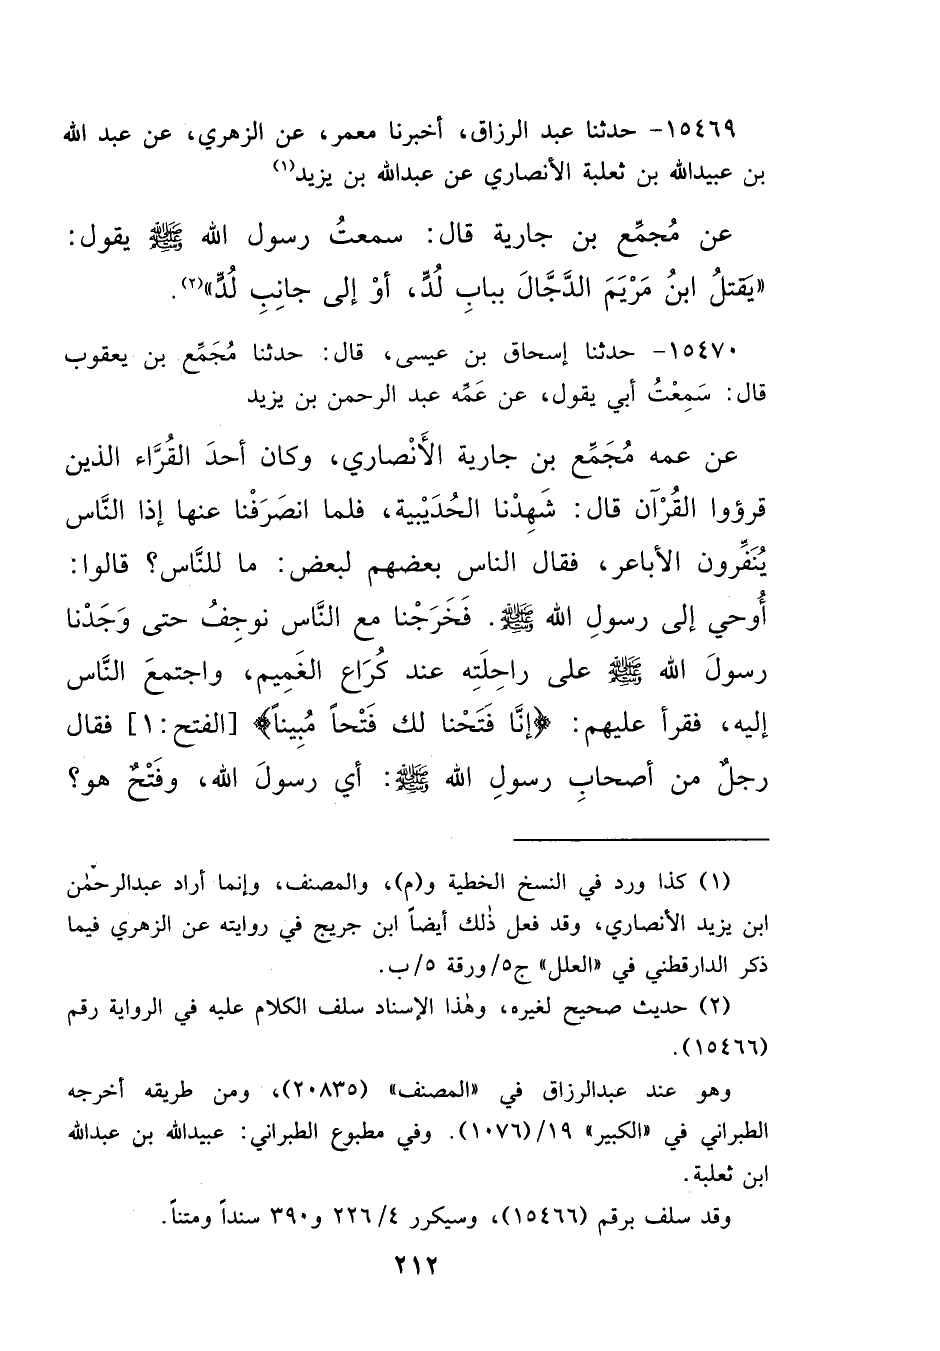 ١٥٤٦٩- حدثنا عبد الرزاق، أخبرنا معمر، عن الزهري، عن عبد الله
بن عبيدالله بن ثعلبة الأنصاري عن عبدالله بن يزيد(١)
عن مُجمِّع بن جارية قال: سمعتُ رسول الله ﷺ يقول:
«يَقتلُ ابنُ مَرْيَمَ الدَّجَّالَ ببابِ لُدٍّ، أوْ إلى جانِبِ لُدٍّ»(٢).
١٥٤٧٠- حدثنا إسحاق بن عيسى، قال: حدثنا مُجَمِّع بن يعقوب
قال: سَمِعْتُ أبي يقول، عن عَمِّه عبد الرحمن بن يزيد
عن عمه مُجَمِّع بن جارية الأَنْصاري، وكان أحدَ القُرَّاء الذين
قرؤوا القُرْآن قال: شَهِدْنا الحُدَيْبية، فلما انصَرَفْنا عنها إذا النَّاس
يُنَفِّرون الأباعر، فقال الناس بعضهم لبعض: ما للنَّاس؟ قالوا:
أُوحي إلى رسولِ الله ﷺ. فَخَرَجْنا مع النَّاس نوجِفُ حتى وَجَدْنا
رسولَ الله ﷺ على راحِلَتِه عند كُرَاع الغَمِيم، واجتمعَ النَّاس
إليه، فقرأ عليهم: ﴿إنَّا فَتَحْنا لك فَتْحاً مُبِيناً﴾ [الفتح:١] فقال
رجلٌ من أصحابِ رسولِ الله ﷺ: أي رسولَ الله، وفَتْحٌ هو؟
(١) كذا ورد في النسخ الخطية و(م)، والمصنف، وإنما أراد عبدالرحمٰن
ابن يزيد الأنصاري، وقد فعل ذٰلك أيضاً ابن جريج في روايته عن الزهري فيما
ذكر الدارقطني في «العلل» ج٥/ورقة ٥/ب.
(٢) حديث صحيح لغيره، وهٰذا الإسناد سلف الكلام عليه في الرواية رقم
(١٥٤٦٦).
وهو عند عبدالرزاق في «المصنف» (٢٠٨٣٥)، ومن طريقه أخرجه
الطبراني في «الكبير» ١٩/(١٠٧٦). وفي مطبوع الطبراني: عبيدالله بن عبدالله
ابن ثعلبة.
وقد سلف برقم (١٥٤٦٦)، وسيكرر ٢٢٦/٤ و٣٩٠ سنداً ومتناً.
٢١٢